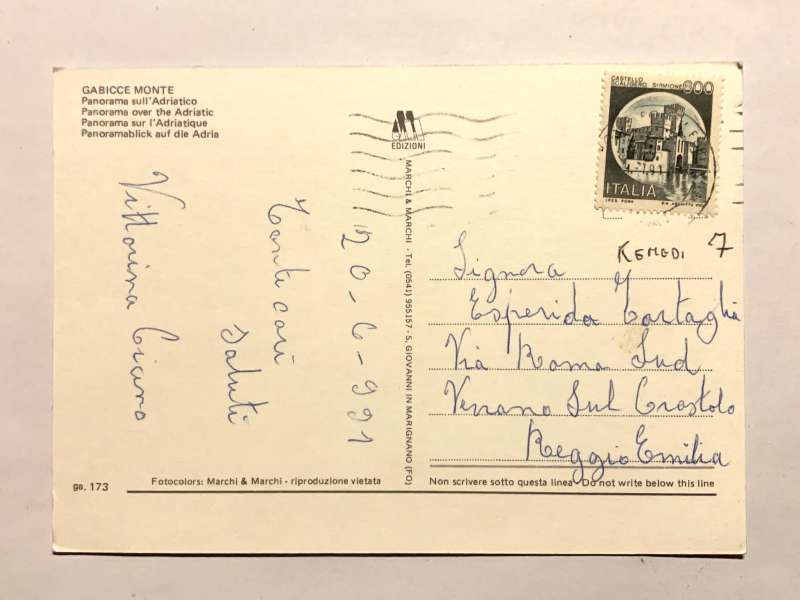 GABICCE MONTE
Panorama sull'Adriatico
Panorama over the Adriatic
Panorama sur l'Adriatique
Panoramablick auf die Adria
EDIZIONI
MARCHI & MARCHI - Tel. (0541) 955157 - S. GIOVANNI IN MARIGNANO (FO)
CASTELLO
SCALIGERO SIRMIONE 600
ITALIA
I.P.Z.S. ROMA
20-6-991
Tanti cari
saluti
Vittorina
KEMEDI 7
Signora
Esperida Tartaglia
Via Roma Sud
Vezzano Sul Crostolo
Reggio Emilia
ga. 173
Fotocolors: Marchi & Marchi - riproduzione vietata
Non scrivere sotto questa linea - Do not write below this line